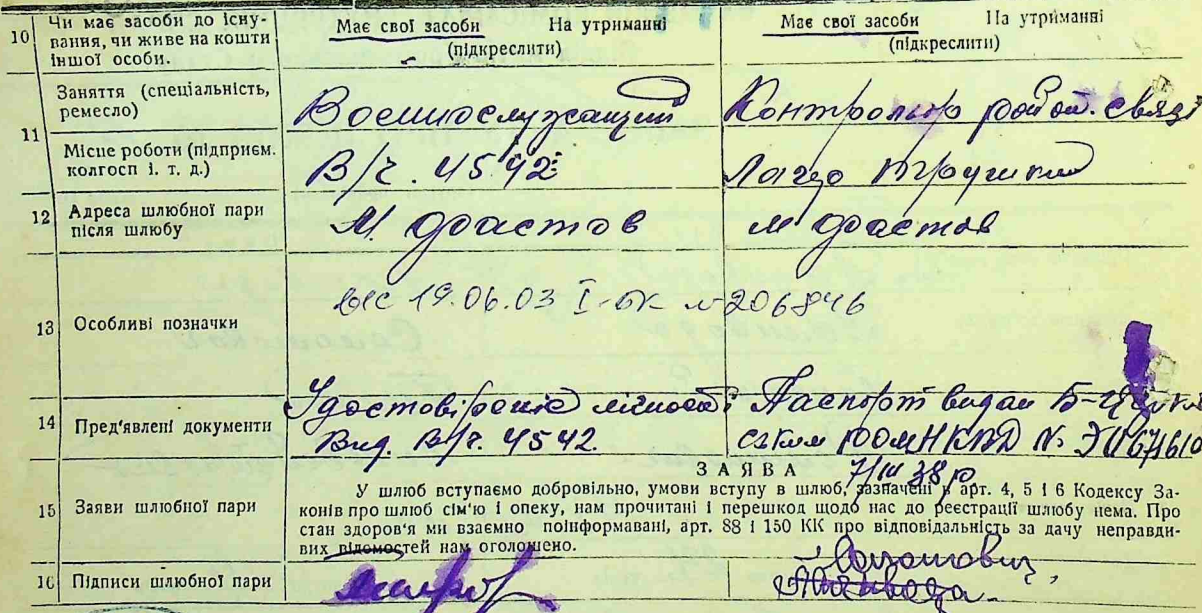 10 Чи має засоби до існу-
вання, чи живе на кошти
іншої особи.
Має свої засоби На утриманні
(підкреслити)
Має свої засоби На утриманні
(підкреслити)
11 Заняття (спеціальність,
ремесло)
Военнослужащий
Контрольор район. связі
Місце роботи (підприєм.
колгосп і. т. д.)
В/ч. 4542
12 Адреса шлюбної пари
після шлюбу
М. Фастов
м Фастов
13 Особливі позначки
19.06.03 I-БК № 206846
14 Пред'явлені документи
Удостовіреніє лічності
Вид. В/ч. 4542.
Паспорт видан Б-Церков
ським РОМ НКВД №
7/III 38 р
15 Заяви шлюбної пари
ЗАЯВА
У шлюб вступаємо добровільно, умови вступу в шлюб, зазначені в арт. 4, 5 і 6 Кодексу За-
конів про шлюб сім'ю і опеку, нам прочитані і перешкод щодо нас до реєстрації шлюбу нема. Про
стан здоров'я ми взаємно поінформавані, арт. 88 і 150 КК про відповідальність за дачу неправди-
вих відомостей нам оголошено.
16 Підписи шлюбної пари